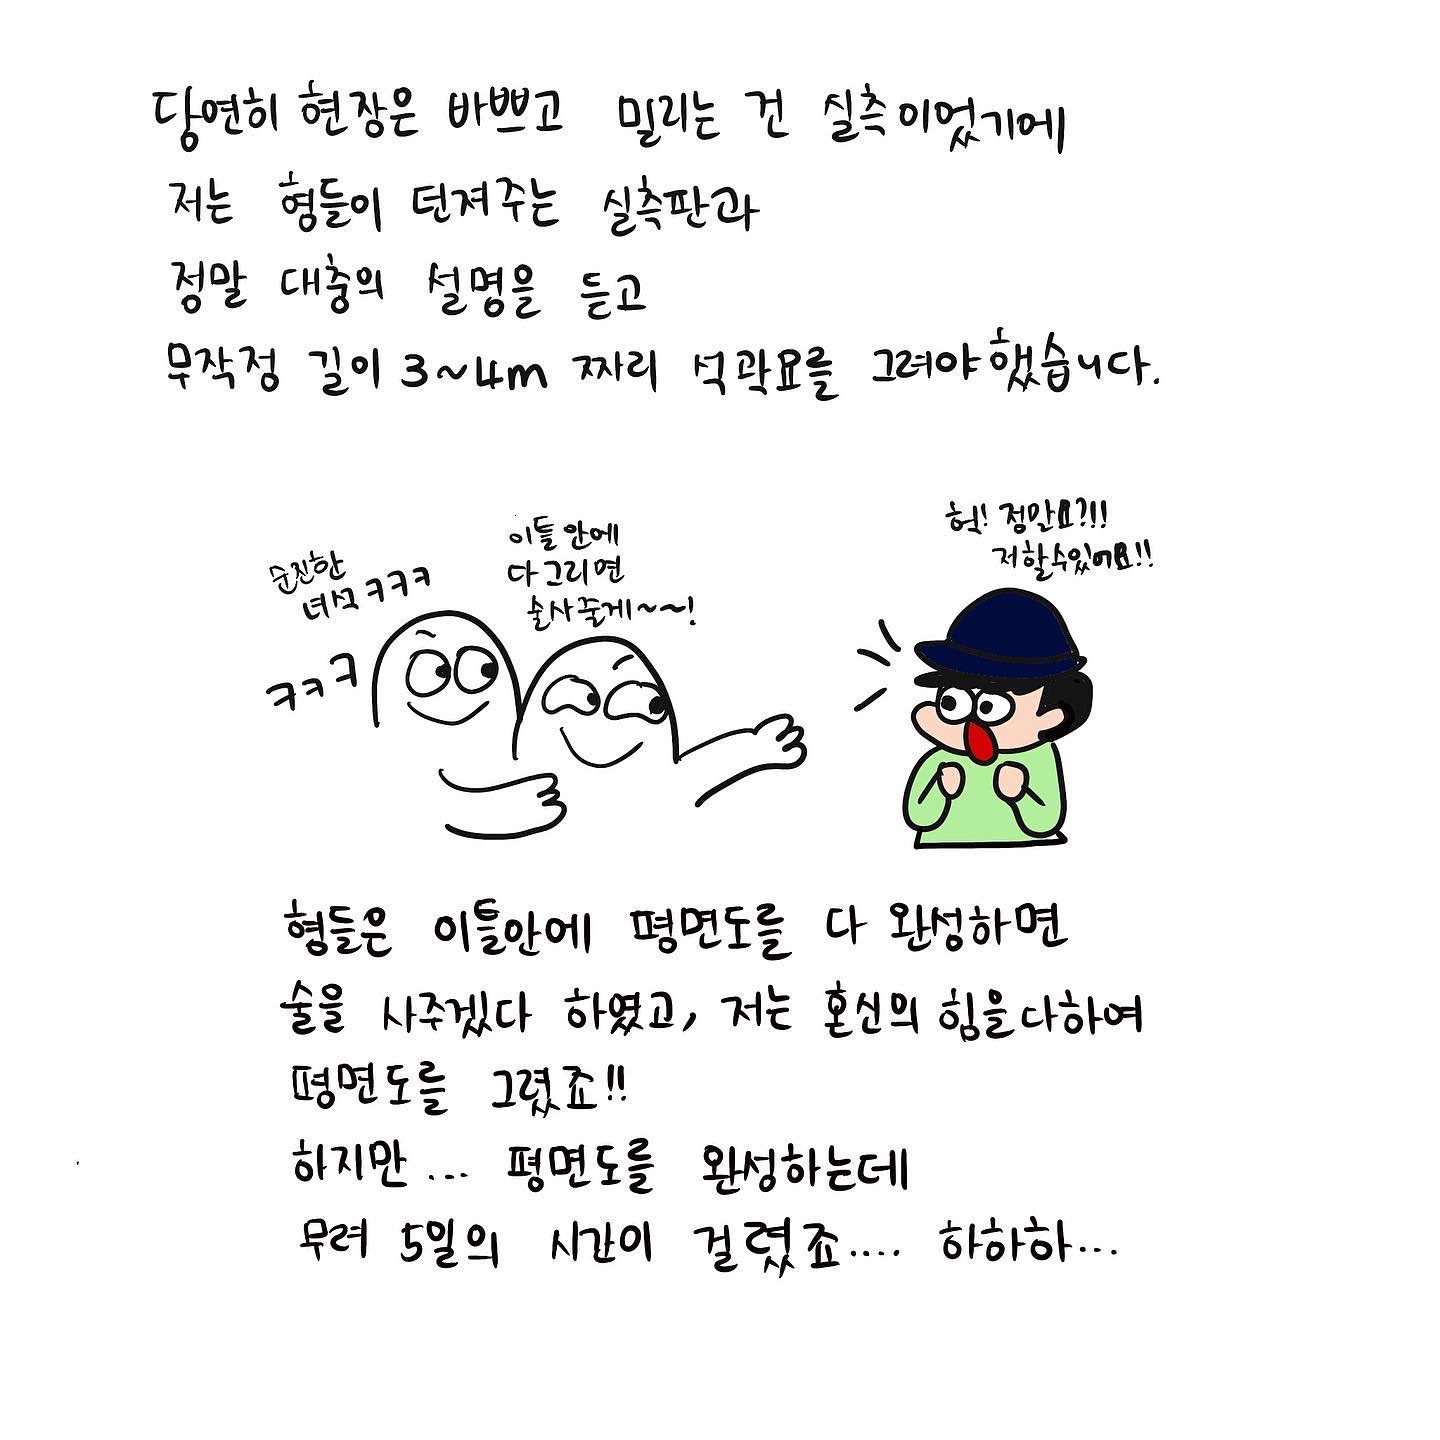 당연히 현장은 바쁘고 밀리는 건 실측이었기에
저는 형들이 던져주는 실측판과
정말 대충의 설명을 듣고
무작정 길이 3~4m 짜리 석곽묘를 그려야했습니다.
순진한
녀석 ㅋㅋㅋ
ㅋㅋㅋ
이틀 안에
다 그리면
술사줄게~~!
헉! 정말요?!!
저할수있어요!!
형들은 이틀안에 평면도를 다 완성하면
술을 사주겠다 하였고, 저는 혼신의 힘을다하여
평면도를 그렸죠!!
하지만... 평면도를 완성하는데
무려 5일의 시간이 걸렸죠.... 하하하...